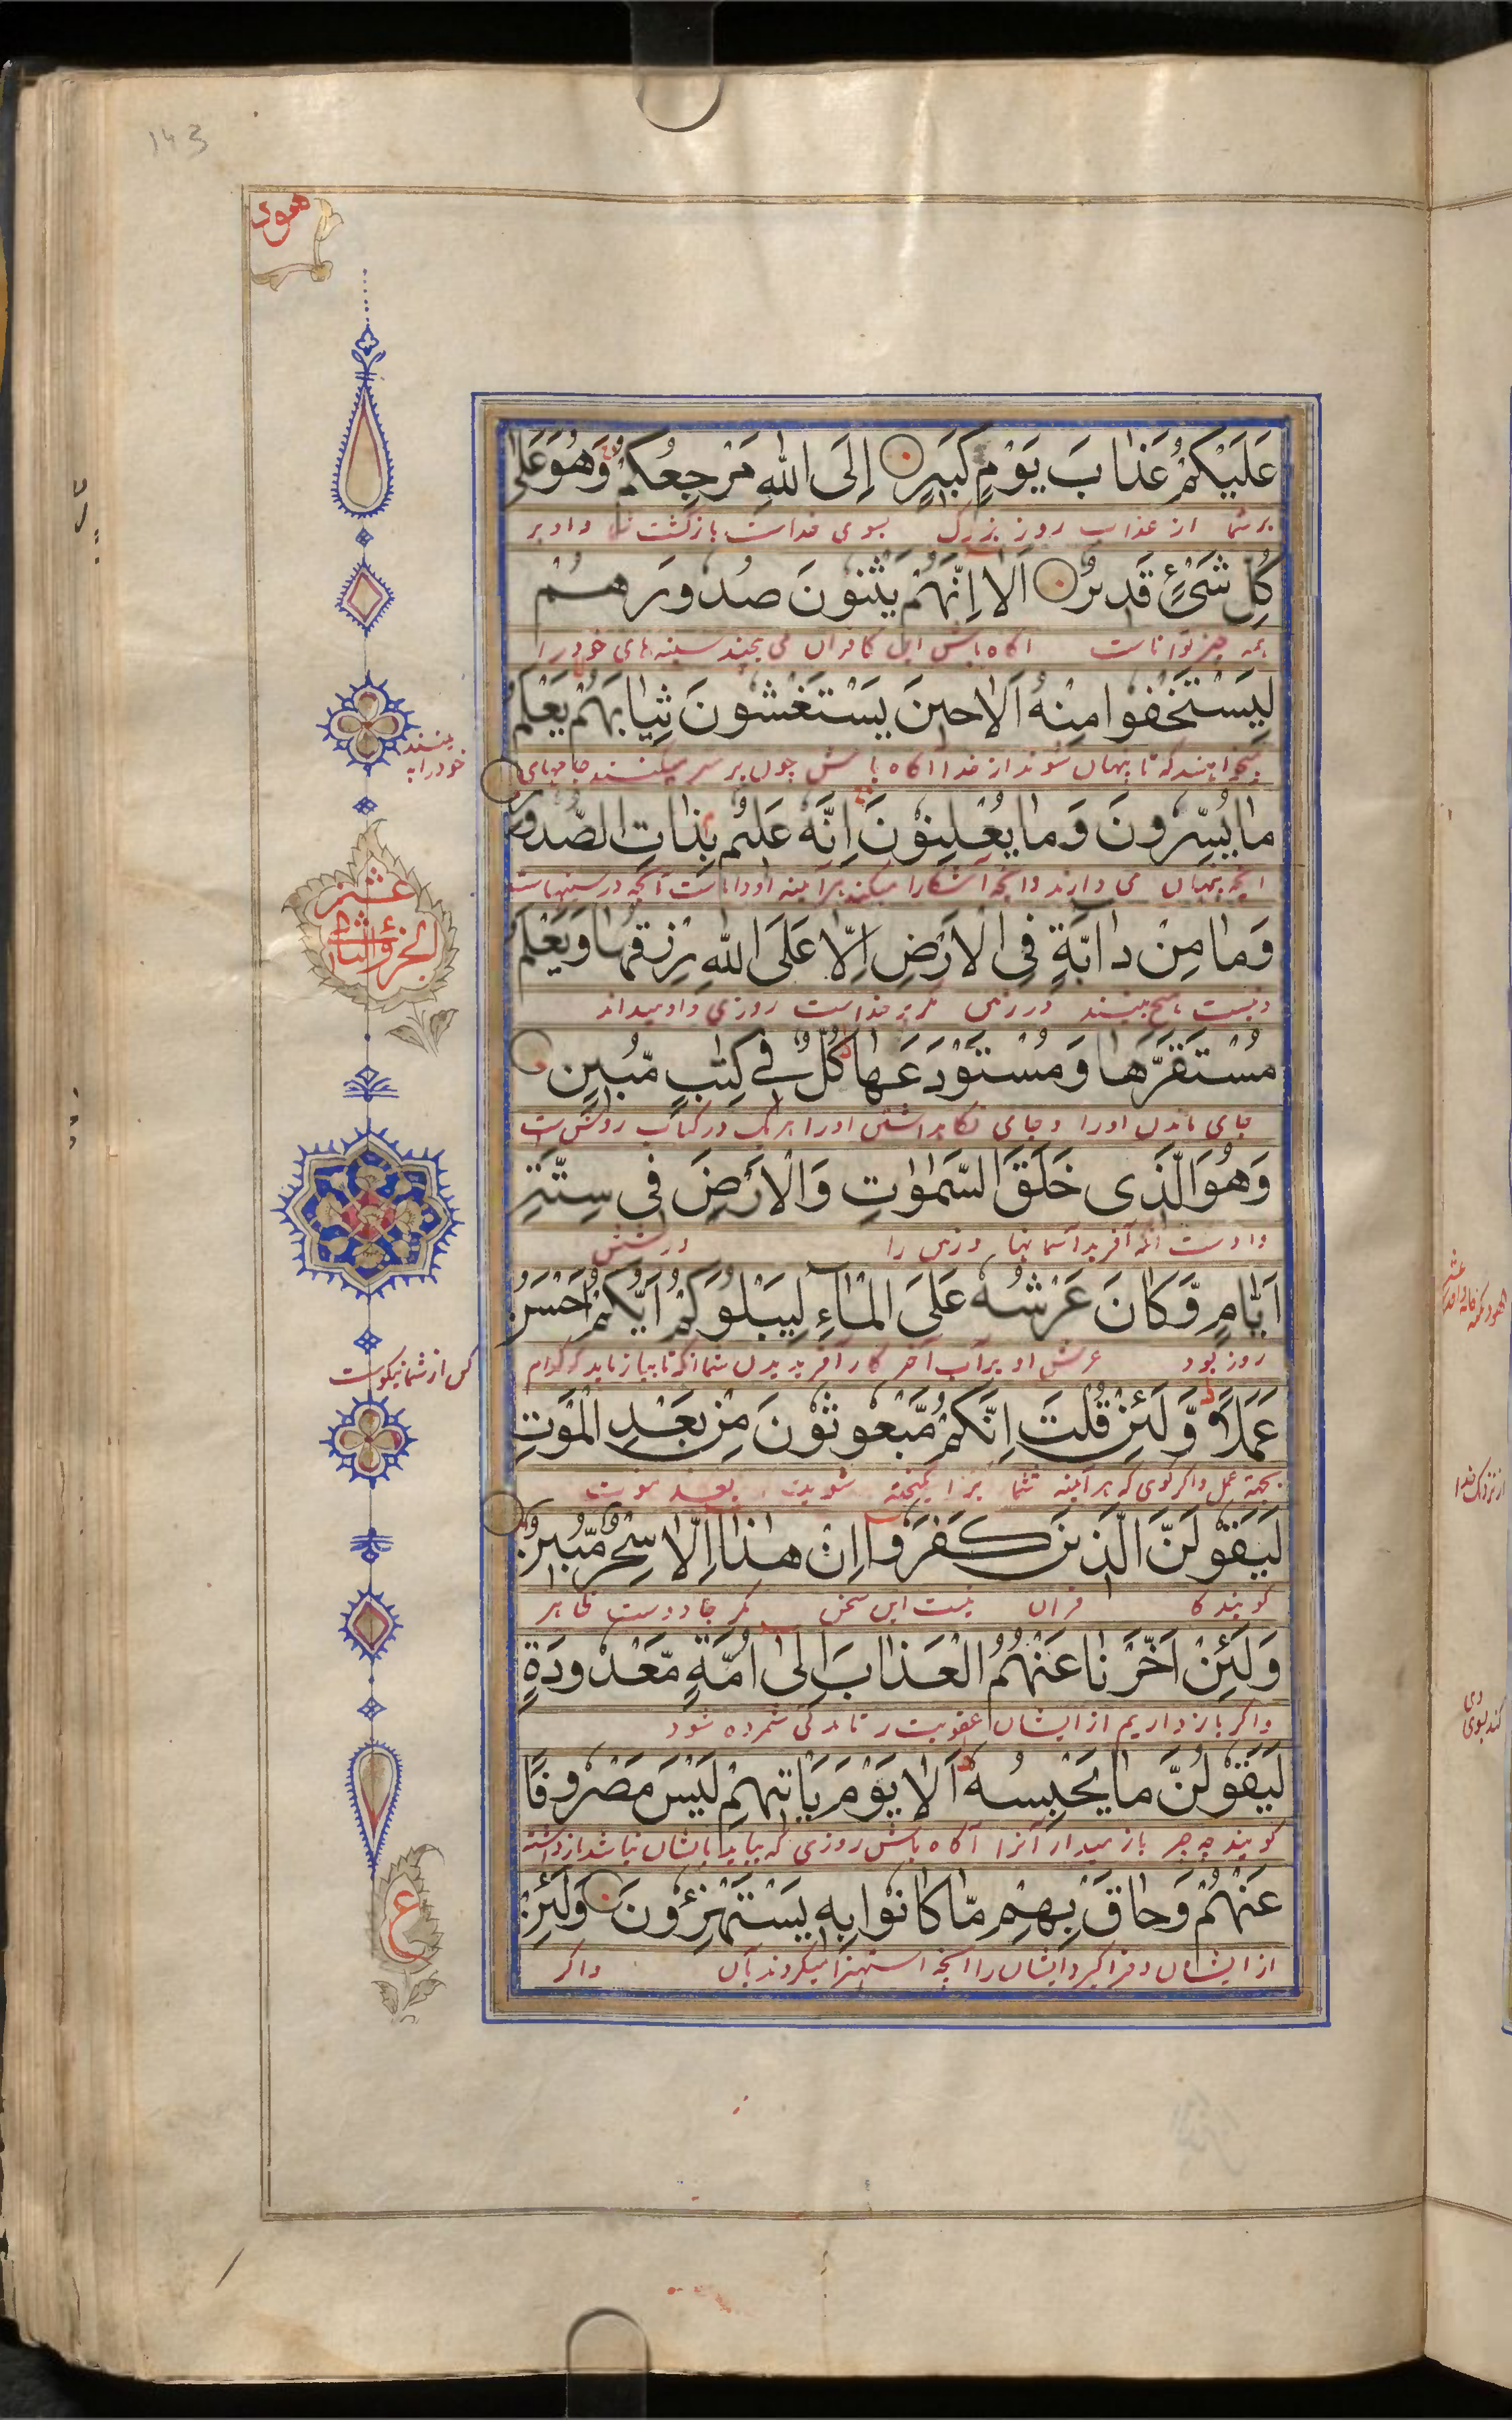 143
هود
عَلَيْكُمْ عَذَابَ يَوْمٍ كَبِيرٍ اِلَى اللّٰهِ مَرْجِعُكُمْ وَهُوَ عَلٰى
بر شما از عذاب روز بزرگ بسوی خداست بازگشت شما و او بر
كُلِّ شَىْءٍ قَدِيرٌ اَلَا اِنَّهُمْ يَثْنُونَ صُدُورَهُمْ
همه چیز تواناست آگاه باش این کافران می پیچند سینه های خود را
لِيَسْتَخْفُوا مِنْهُ اَلَا حِينَ يَسْتَغْشُونَ ثِيَابَهُمْ يَعْلَمُ
میخواهند که تا پنهان شوند از خدا آگاه باش چون بر سر میکنند جامهای
خود را به
مَا يُسِرُّونَ وَمَا يُعْلِنُونَ اِنَّهُ عَلِيمٌ بِذَاتِ الصُّدُورِ
آنچه پنهان می دارند و آنچه آشکارا میکنند هر آینه او داناست آنچه در سینهاست
عشر
الجزؤ الثانى
وَمَا مِنْ دَابَّةٍ فِى الْاَرْضِ اِلَّا عَلَى اللّٰهِ رِزْقُهَا وَيَعْلَمُ
و نیست هیچ جنبنده در زمین مگر بر خداست روزی و او میداند
مُسْتَقَرَّهَا وَمُسْتَوْدَعَهَا كُلٌّ فِى كِتٰبٍ مُّبِينٍ
جای ماندن او را و جای نگاهداشتن او را هر یک در کتاب روشن است
وَهُوَ الَّذِى خَلَقَ السَّمٰوٰتِ وَالْاَرْضَ فِى سِتَّةِ
و اوست آنکه آفرید آسمانها و زمین را در شش
اَيَّامٍ وَّكَانَ عَرْشُهُ عَلَى الْمَآءِ لِيَبْلُوَكُمْ اَيُّكُمْ اَحْسَنُ
روز بود عرش او بر آب آخر کار آفریدن شما آنکه تا بیازماید که کدام
کس از شما نیکوست
عَمَلًا وَّلَئِنْ قُلْتَ اِنَّكُمْ مَّبْعُوثُونَ مِنْ بَعْدِ الْمَوْتِ
بجهة عمل و اگر گوی که هر آینه شما بر انگیخته شوید بعد موت
لَيَقُولَنَّ الَّذِينَ كَفَرُوا اِنْ هٰذَا اِلَّا سِحْرٌ مُّبِينٌ
گویند کا فران نیست این سخن مگر جادوست ظاهر
وَلَئِنْ اَخَّرْنَا عَنْهُمُ الْعَذَابَ اِلٰى اُمَّةٍ مَّعْدُودَةٍ
و اگر باز داریم از ایشان عقوبت را تا مدتی شمرده شود
لَيَقُولُنَّ مَا يَحْبِسُهُ اَلَا يَوْمَ يَأْتِيهِمْ لَيْسَ مَصْرُوفًا
گویند چه چیز باز میدارد آنرا آگاه باش روزی که بیاید بایشان نباشد باز داشته
عَنْهُمْ وَحَاقَ بِهِمْ مَّا كَانُوا بِهِ يَسْتَهْزِءُونَ وَلَئِنْ
از ایشان و فرا گیرد ایشان را آنچه استهزا میکردند بآن و اگر
ع